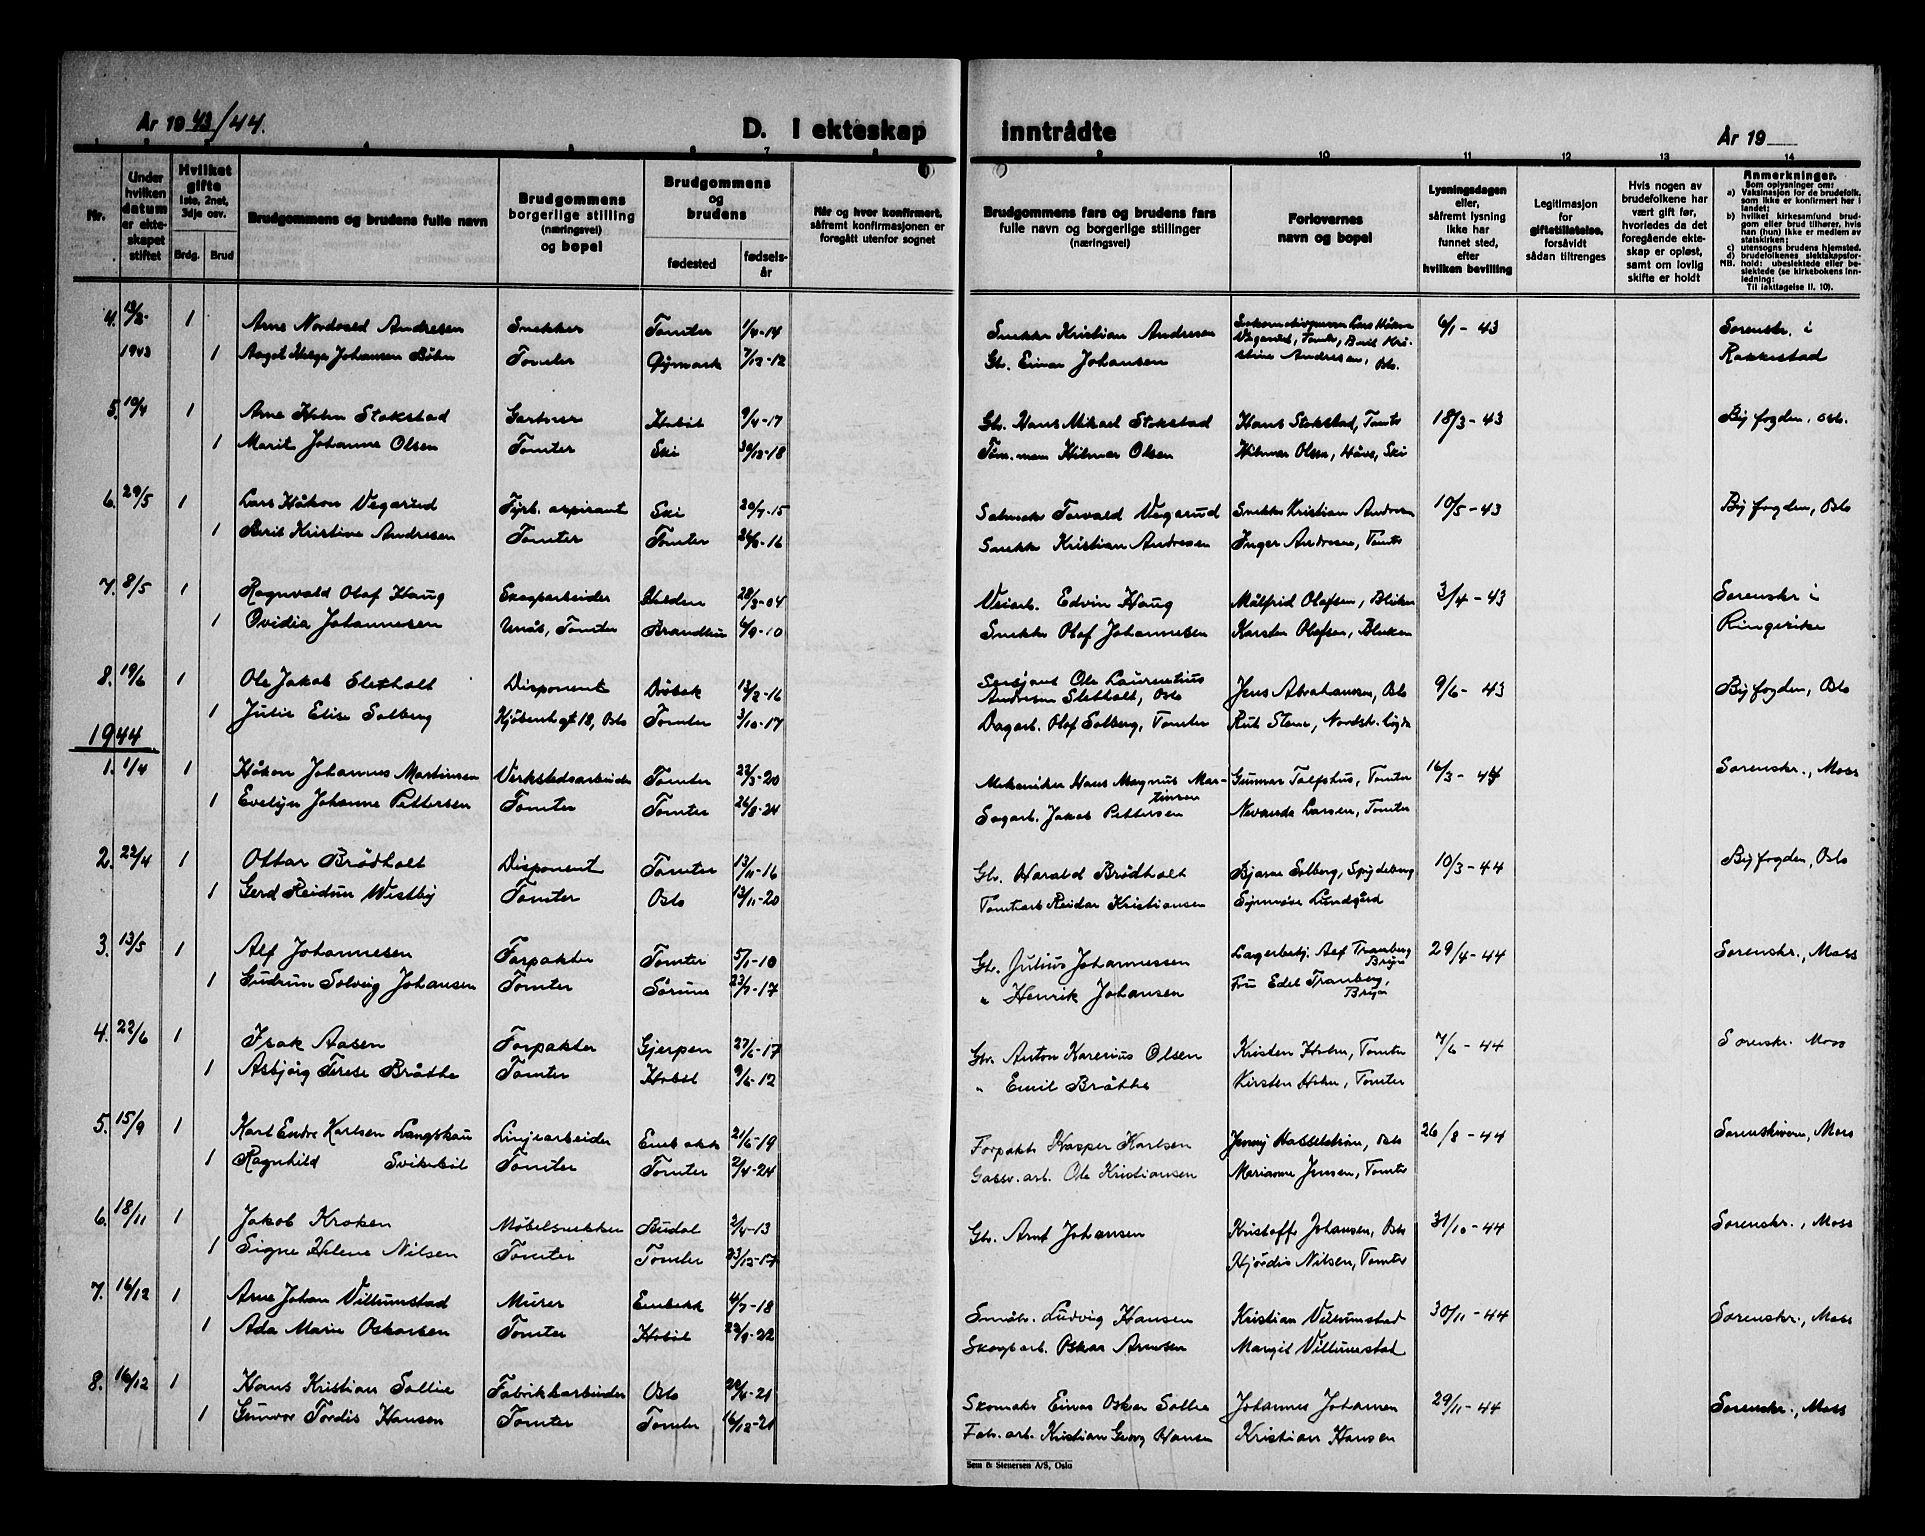 År 1943/44.
D. I ekteskap inntrådte
År 19
1 2 3 4 5 6 7 8 9 10 11 12 13 14
Nr.
Under hvilken datum er ekteskapet stiftet
Hvilket gifte 1ste, 2net, 3dje osv.
Brdg. Brud
Brudgommens og brudens fulle navn
Brudgommens borgerlige stilling (næringsvei) og bopel
Brudgommens og brudens
fødested
fødselsår
Når og hvor konfirmert, såfremt konfirmasjonen er foregått utenfor sognet
Brudgommens fars og brudens fars fulle navn og borgerlige stillinger (næringsvei)
Forlovernes navn og bopel
Lysningsdagen eller, såfremt lysning ikke har funnet sted, efter hvilken bevilling
Legitimasjon for giftetillatelse, forsåvidt sådan tiltrenges
Hvis nogen av brudefolkene har vært gift før, hvorledes da det foregående ekteskap er opløst, samt om lovlig skifte er holdt
Anmerkninger.
Som oplysninger om:
a) Vaksinasjon for de brudefolk, som ikke er konfirmert her i landet;
b) hvilket kirkesamfund brudgom eller brud tilhører, hvis han (hun) ikke er medlem av statskirken;
c) utensogns brudens hjemsted.
d) brudefolkenes slektskapsforhold: ubeslektede eller beslektede (se kirkebokens innledning:
NB.
Til iakttagelse II. 10).
4. 1 Arne Nordvold Andresen Snekker Tomter 1/4-14 Snekker Kristian Andresen Lars Håkon 6/1-43 Sorenskr. i
1943 1 Aagot Helge Johansen Bøhn Tomter Øymark 7/12-12 Gb. Einar Johansen Vegarud, Tomter, Berit Kristine Andresen, Oslo. Rakkestad
5. 10/4 1 Arne Holm Stokstad Gartner Hobøl 9/4-17 Gb. Hans Mikael Stokstad Hans Stokstad, Tomter 18/3-43 Byfogden, Oslo.
1 Marit Johanne Olsen Tomter Ski 30/12-18 Tøm.mem Hilmar Olsen Hilmar Olsen, Håve, Ski
6. 29/5 1 Lars Håkon Vegarud Fyrb. aspirant Ski 20/7-15 Torvald Vegarud Snekker Kristian Andresen 10/5-43 Byfogden, Oslo
1 Berit Kristine Andresen Tomter Tomter 24/6-16 Snekker Kristian Andresen Inger Andresen, Tomter
7. 8/5 1 Ragnvald Olaf Haug Skogsarbeider Halden 28/3-04 Veiarb. Edvin Haug Målfrid Olafsen, Bliken 3/4-43 Sorenskr i
1 Ovidia Johannesen Unås, Tomter Brandbu 6/9-10 Snekker Olaf Johannesen Karsten Olafsen, Bliken Ringerike
8. 19/6 1 Ole Jakob Sletholt Disponent Drøbak 12/2-16 Sersjant Ole Laurentius Andresen Sletholt, Oslo Jens Abrahamsen, Oslo 9/6-43 Byfogden, Oslo
1 Julie Elise Solberg Kjøbenh.gt 18, Oslo Tomter 3/10-17 Dagarb. Olof Solberg, Tomter Rut Stene, Nordstr.
1944
1. 1/4 1 Håkon Johannes Martinsen Verkstedsarbeider Tomter 22/3-20 Mekaniker Hans Magnus Martinsen Gunnar Talfshus, Tomter 16/3-44 Sorenskr., Moss
1 Evelyn Johanne Pettersen Tomter Tomter 26/8-24 Sagarb. Jakob Pettersen Nevanda Larsen, Tomter
2. 22/4 1 Ottar Brødholt Disponent Tomter 13/11-16 Gb. Harald Brødholt Bjarne Solberg, Spydeberg 10/3-44 Byfogden, Oslo
1 Gerd Reidun Westby Tomter Oslo 13/11-20 Tomtearb Reidar Kristiansen Synnøve Lundgård
3. 13/5 1 Alf Johannesen Forpakter Tomter 5/1-10 Gb. Julius Johannessen Lagerbetj. Alf Tranberg Bryn 29/4-44 Sorenskr., Moss
1 Gudrun Solveig Johansen Tomter Sørum 23/7-17 " Henrik Johansen Fru Edel Tranberg, Bryn
4. 22/6 1 Isak Aasen Forpakter Gjerpen 27/6-17 Gb. Anton Karenius Olsen Kristen Holm, Tomter 7/6-44 Sorenskr. Moss
1 Asbjørg Terese Bråthe Tomter Hobøl 9/6-12 " Emil Bråthe Kirsten Holm, Tomter
5. 15/9 1 Karl Endre Karlsen Langskau Linjearbeider Enebakk 21/6-19 Forpakter Kasper Karlsen Jenny Hasselstrøm, Oslo 26/8-44 Sorenskriveren, Moss
1 Ragnhild Svikebøl Tomter Tomter 2/4-24 Gassv.arb. Ole Kristiansen Marianne Jensen, Tomter
6. 18/11 1 Jakob Kroken Møbelsnekker Budal 2/4-13 Gb. Arnt Johansen Kristoffer Johansen, Oslo 31/10-44 Sorenskr., Moss
1 Signe Helene Nilsen Tomter Tomter 23/12-17 Hjørdis Nilsen, Tomter
7. 16/12 1 Arne Johan Villumstad Murer Enebakk 4/7-18 Småbr. Ludvig Hansen Kristian Villumstad 30/11-44 Sorenskr., Moss
1 Ada Marie Oskarsen Tomter Hobøl 29/9-22 Skogsarb. Oskar Arnesen Margit Villumstad
8. 16/12 1 Hans Kristian Sollie Fabrikkarbeider Oslo 20/6-21 Skomaker Einar Oskar Sollie Johannes Johansen 29/11-44 Sorenskr., Moss
1 Gunvor Tordis Hansen Tomter Tomter 16/12-21 Fab.arb. Kristian Georg Hansen Kristian Hansen
Sem & Stenersen A/S, Oslo